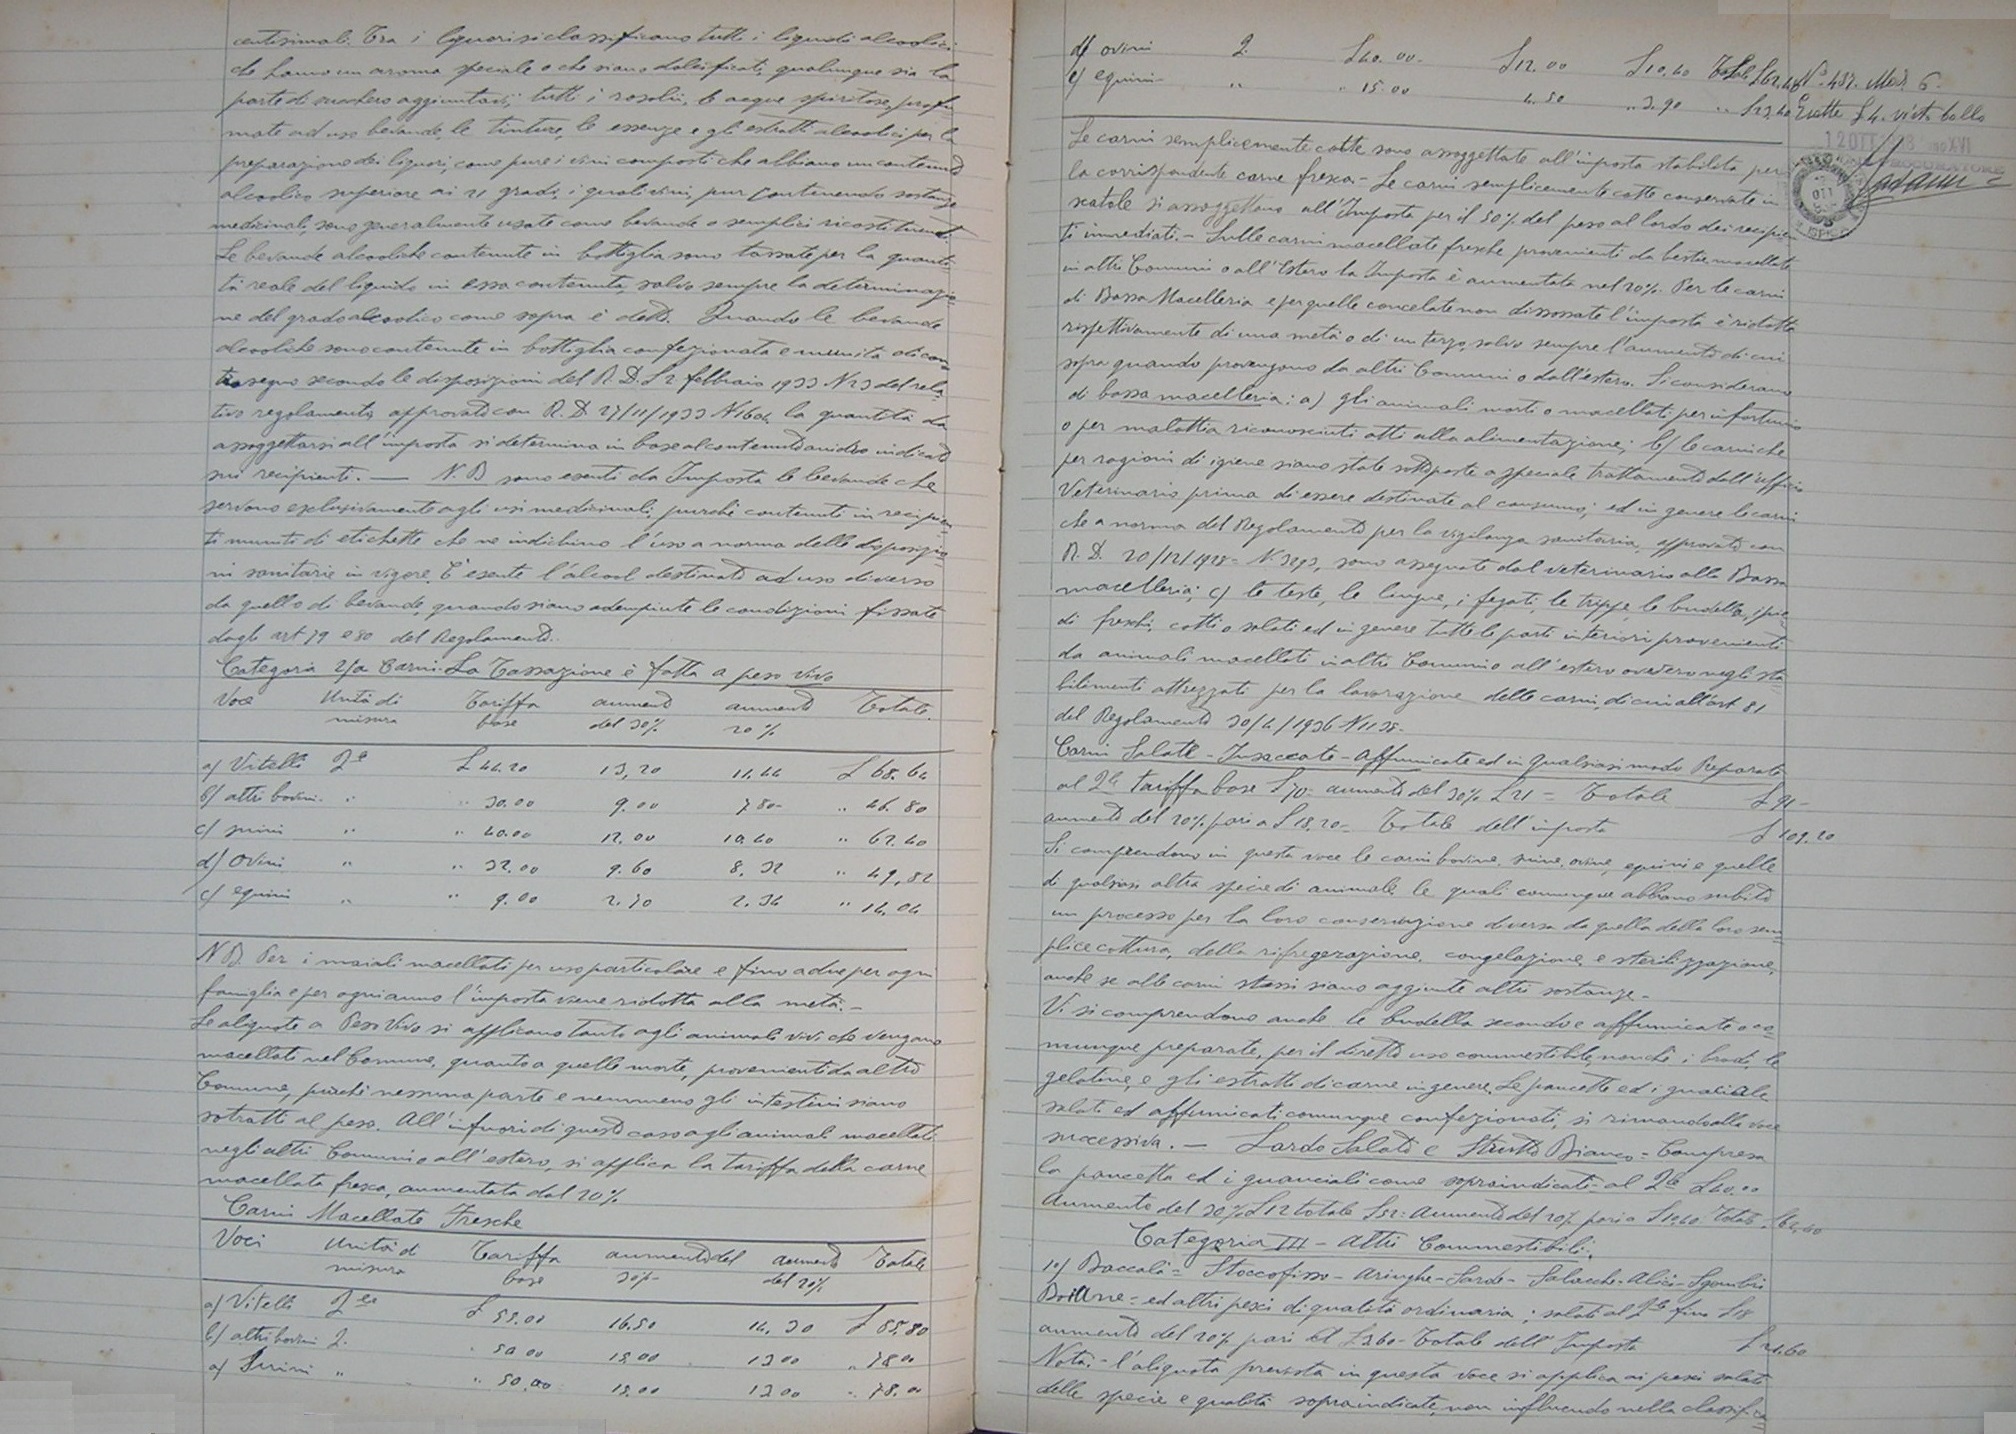 centesimali. Tra i liquori si classificano tutti i liquidi alcoolici
che hanno un aroma speciale o che siano dolcificati, qualunque sia la
parte di zucchero aggiuntavi; tutti i rosolii, le acque spiritose, profu=
mate ad uso bevande, le tinture, le essenze e gli estratti alcoolici per la
preparazione dei liquori, come pure i vini composti che abbiano un contenuto
alcoolico superiore ai 21 gradi, i quali vini, pur contenendo sostanze
medicinali, sono generalmente usate come bevande o semplici ricostituenti.
Le bevande alcooliche contenute in bottiglia sono tassate per la quanti=
tà reale del liquido in essa contenuta, salvo sempre la determinazio=
ne del grado alcoolico come sopra è detto. Quando le bevande
alcooliche sono contenute in bottiglia confezionata e munita di con
trassegno secondo le disposizioni del R.D.L 2 febbraio 1933 N 23 del rela=
tivo regolamento, approvato con R.D. 27/11/1933 N 1604, la quantità da
assoggettarsi all'imposta si determina in base al contenuto anidro indicato
sui recipienti. — N.B sono esenti da Imposta le bevande che
servono esclusivamente agli usi medicinali, purchè contenuti in recipien=
ti muniti di etichette che ne indichino l'uso a norma delle disposizio=
ni sanitarie in vigore. È esente l'alcool destinato ad uso diverso
da quello di bevande, quando siano adempiute le condizioni fissate
dagli art 79 e 80 del Regolamento.
Categoria 2/a Carni. La Tassazione è fatta a peso vivo
Voce Unità di misura Tariffa base aumento del 30% aumento 20% Totale
a) Vitelli Q.le £ 44.20 13,20 11.44 £ 68.64
b) altri bovini " " 30.00 9.00 7 80- " 46.80
c) suini " " 40.00 12.00 10.40 " 62.40
d) ovini " " 32.00 9.60 8.32 " 49,82
e) equini " " 9.00 2.70 2.34 " 14.04
N.B. Per i maiali macellati per uso particolare e fino a due per ogni
famiglia e per ogni anno l'imposta viene ridotta alla metà.-
Le aliquote a Peso Vivo si applicano tanto agli animali vivi che vengano
macellati nel Comune, quanto a quelle morte, provenienti da altro
Comune, purchè nessuna parte e nemmeno gli intestini siano
sottratti al peso. All'infuori di questo caso agli animali macellati
negli altri Comuni o all'estero, si applica la tariffa della carne
macellata fresca, aumentata dal 20%
Carni Macellate Fresche
Voci Unità di misura Tariffa base aumento del 30%- aumento del 20% Totale
a) Vitelli Q.le £ 55.00 16.50 14.30 £ 85.80
b) altri bovini Q. " 50 00 15,00 13 00 " 78 00
a) Suini " " 50,00 15.00 13 00 " 78.00
d) ovini Q. £ 40.00- £ 12.00 £ 10.40 Totale £ 62.40
e) equini " " 15.00 4.50 " 3.90 " £ 23,40
N° 487. Mod 6.
Esatte £ 4. vista bollo
12 OTT 1938 XVI
PROCURATORE
ISPICA
Le carni semplicemente cotte sono assoggettate all'imposta stabilita per
la corrispondente carne fresca - Le carni semplicemente cotte conservate in
scatole si assoggettano all'Imposta per il 50% del peso al lordo dei recipien
ti immediati. - Sulle carni macellate fresche provenienti da bestie macellate
in altri Comuni o all'Estero la Imposta è aumentata nel 20%. Per le carni
di Bassa Macelleria e per quelle congelate non dissossate l'imposta è ridotta
rispettivamente di una metà o di un terzo, salvo sempre l'aumento di cui
sopra quando provengono da altri Comuni o dall'estero. Si considerano
di bassa macelleria: a) gli animali morti o macellati per infortunio
o per malattia riconosciuti atti alla alimentazione; b) le carni che
per ragioni di igiene siano state sottoposte a speciale trattamento dall'ufficio
Veterinario prima di essere destinate al consumo; ed in genere le carni
che a norma del Regolamento per la vigilanza sanitaria, approvato con
R.D. 20/12/1928 - N. 3293, sono assegnate dal veterinario alla Bassa
macelleria; c) le teste, le lingue, i fegati, le trippe, le budella, i pie=
di freschi, cotti o salati ed in genere tutte le parti interiori provenienti
da animali macellati in altri Comuni o all'estero ovvero negli sta=
bilimenti attrezzati per la lavorazione delle carni, di cui all'art 81
del Regolamento 30/4/1936 N 1138-
Carni Salate - Insaccate - affumicate ed in qualsiasi modo Preparate
al Q.le tariffa base £ 70- aumento del 30% £ 21 = Totale £ 91-
aumento del 20% pari a £ 18,20 - Totale dell'imposta £ 109.20
Si comprendono in questa voce le carni bovine, suine, ovine, equini e quelle
di qualsiasi altra specie di animale, le quali comunque abbiano subito
un processo per la loro conservazione diversa da quella della loro sem=
plice cottura, della rifregerazione, congelazione, e sterilizzazione,
anche se alle carni stessi siano aggiunte altre sostanze.-
Vi si comprendono anche le budella seconde e affumicate o co=
munque preparate, per il diretto uso commestibile, nonchè i brodi, le
gelatine, e gli estratti di carne in genere. Le pancette ed i guanciale
salati ed affumicati comunque confezionati, si rimanda alla voce
successiva. - Lardo Salato e Strutto Bianco - Compresa
la pancetta ed i guanciali come sopraindicati al Q.le £ 40.00
Aumento del 30% £ 12 totale £ 52: Aumento del 20% pari a £ 10.40 Totale £ 62,40
Categoria III - Altri Commestibili.
10/ Baccalà = Stoccofisso - Aringhe - Sarde - Salacche - Alici - Sgombri
Boiane = ed altri pesci di qualità ordinaria; salati al Q.le fino £ 18
aumento del 20% pari a £ 3.60 - Totale dell'Imposta £ 21.60
Nota: - l'aliquota prevista in questa voce si applica ai pesci salati
delle specie e qualità sopraindicate, non influendo nella classifica=